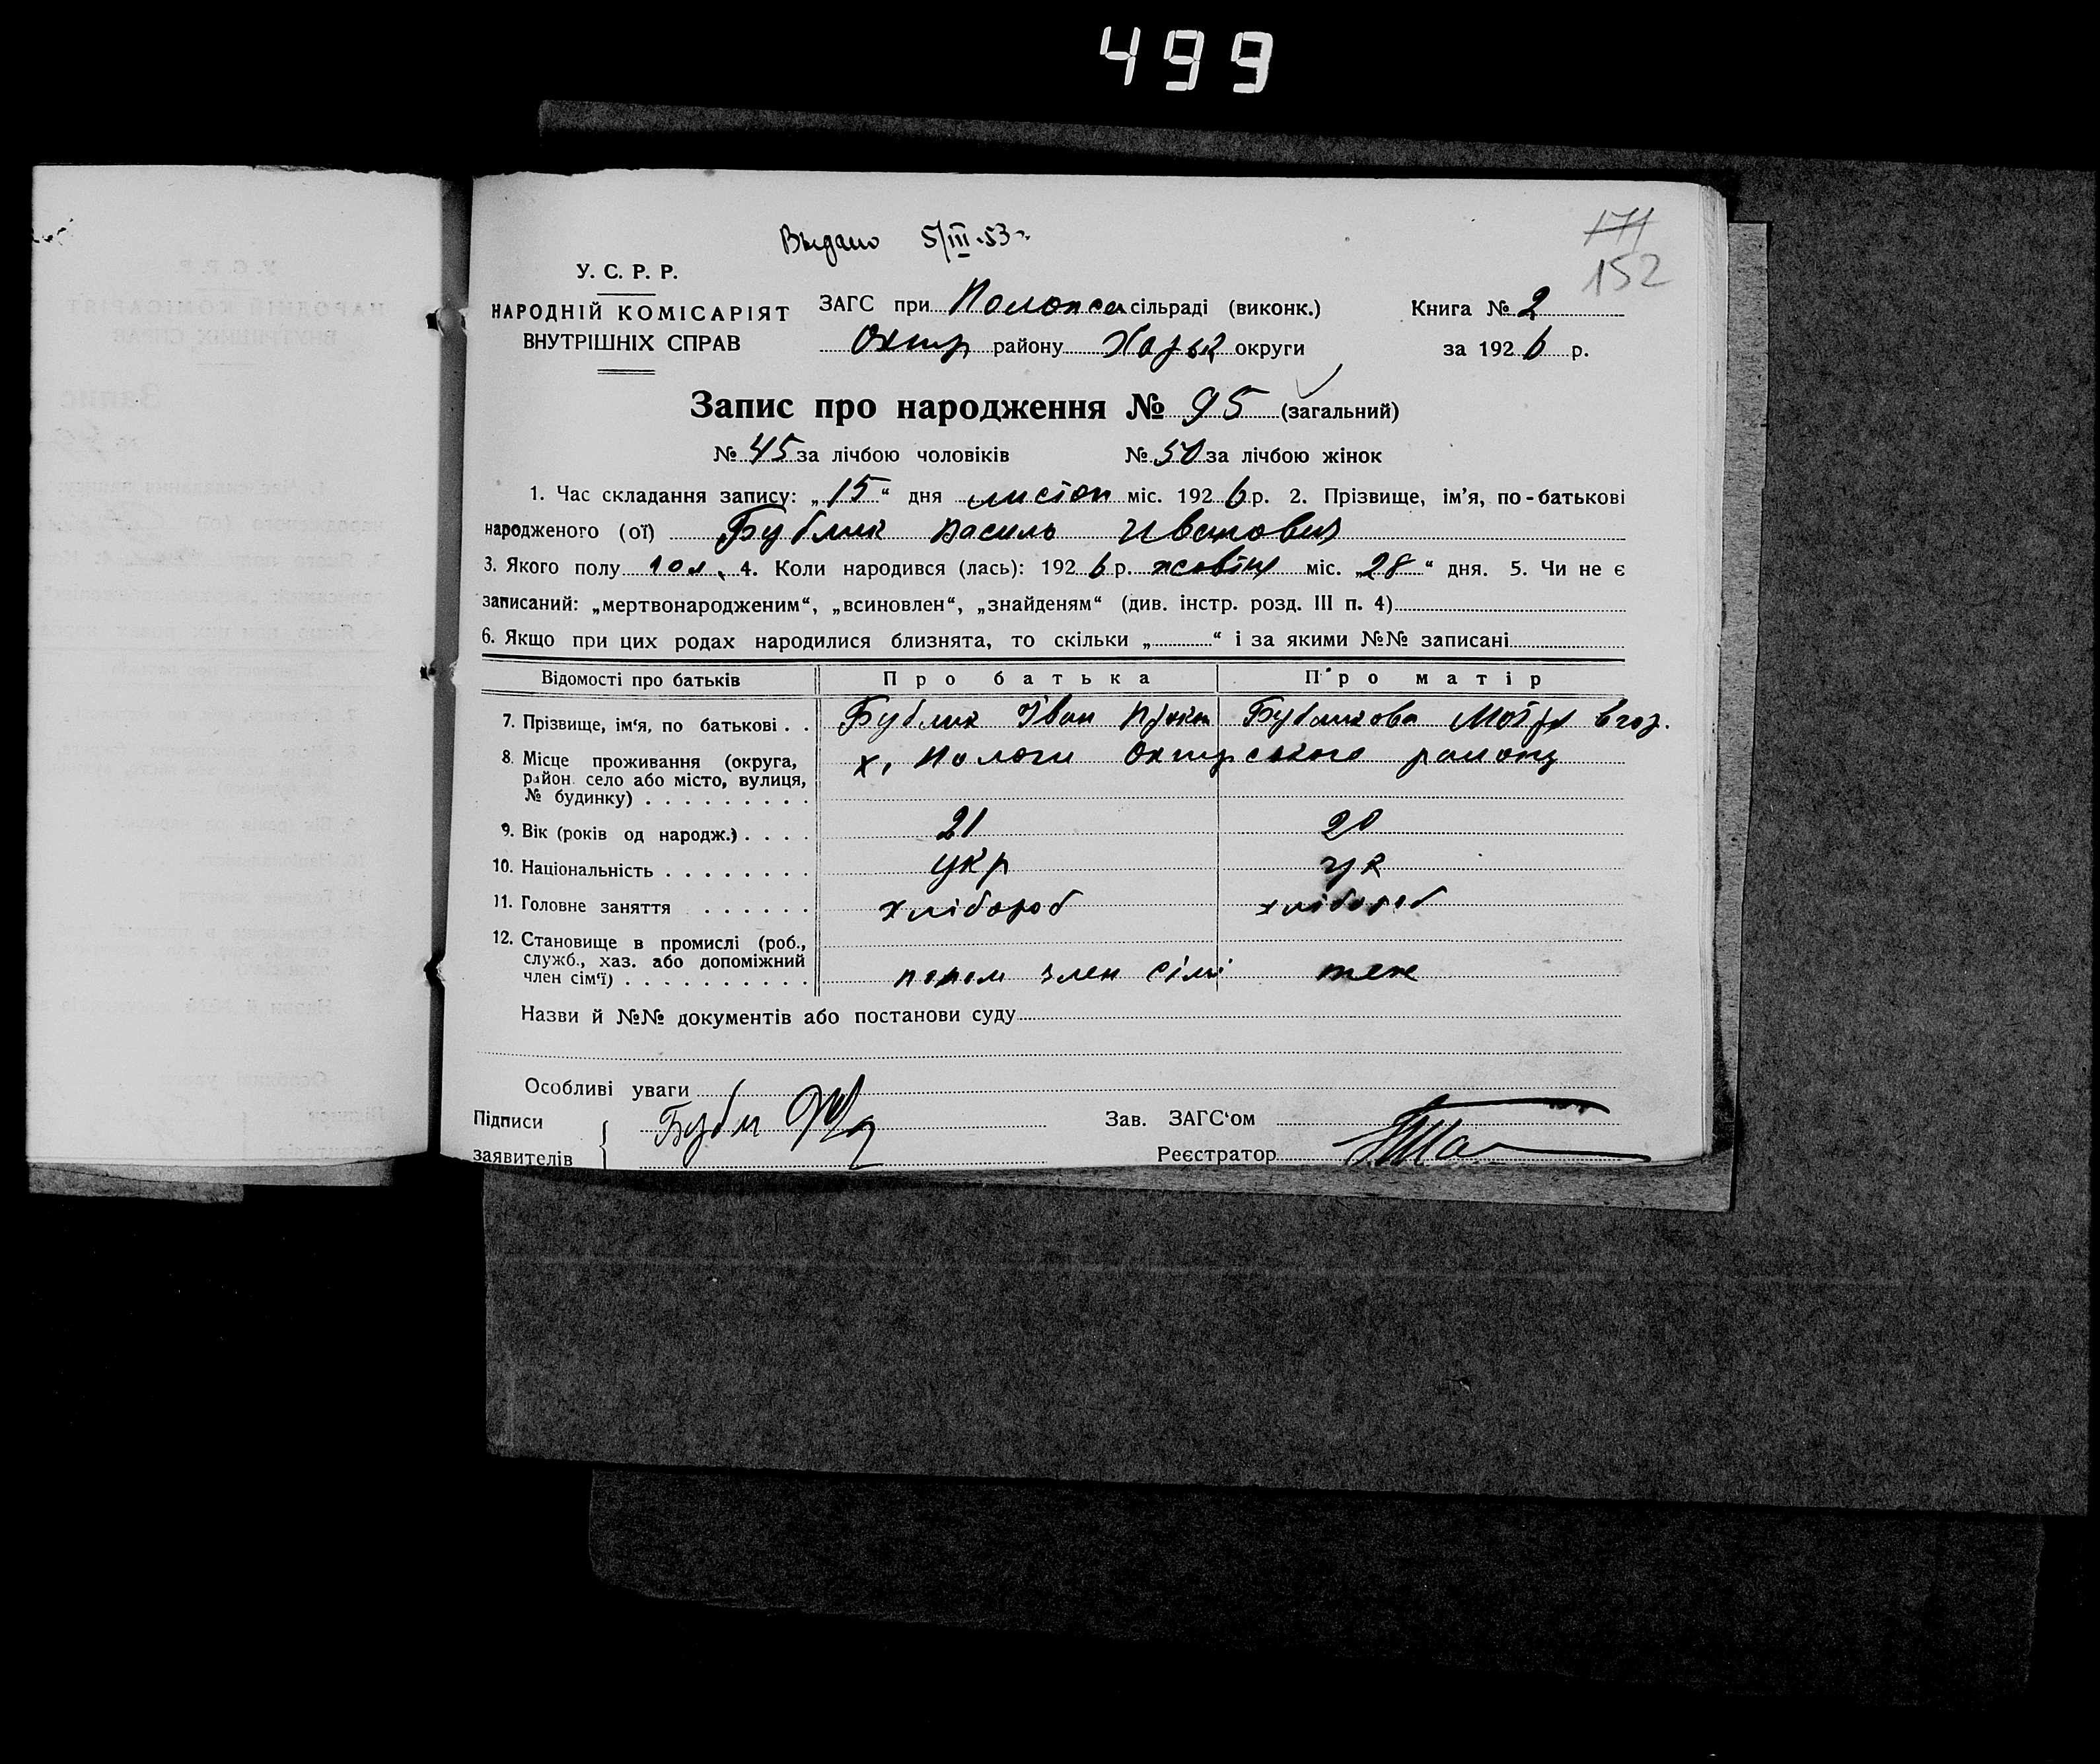 499
Выдано 5/III-53г.
171
152
У. С. Р. Р.
НАРОДНІЙ КОМІСАРІЯТ
ВНУТРІШНІХ СПРАВ
ЗАГС при сільраді (виконк.)
Охтир району Харьк округи
Книга № 2
за 1926 р.
Запис про народження № 95 (загальний)
№ 45 за лічбою чоловіків № 50 за лічбою жінок
1. Час складання запису: „15“ дня листоп міс. 1926 р. 2. Прізвище, ім'я, по-батькові
народженого (ої) Бублик Василь Иванович
3. Якого полу 4. Коли народився (лась): 1926 р. жовтн міс. „28“ дня. 5. Чи не є
записаний: „мертвонародженим“, „всиновлен“, „знайденям“ (див. інстр. розд. III п. 4)
6. Якщо при цих родах народилися близнята, то скільки „ “ і за якими №№ записані
Відомості про батьків Про батька Про матір
7. Прізвище, ім'я, по батькові . . Бублик Іван Бубликова Мотря
8. Місце проживання (округа, х. Пологи Охтирського району
район село або місто, вулиця,
№ будинку) . . . . . . . . .
9. Вік (років од народж.) . . . . 21 20
10. Національність . . . . . . . . укр ук
11. Головне заняття . . . . . . хлібороб хлібороб
12. Становище в промислі (роб.,
служб., хаз. або допоміжний
член сім'ї) . . . . . . . . . . член сімі теж
Назви й №№ документів або постанови суду
Особливі уваги
Підписи Бубли Зав. ЗАГС'ом
заявителів Реєстратор